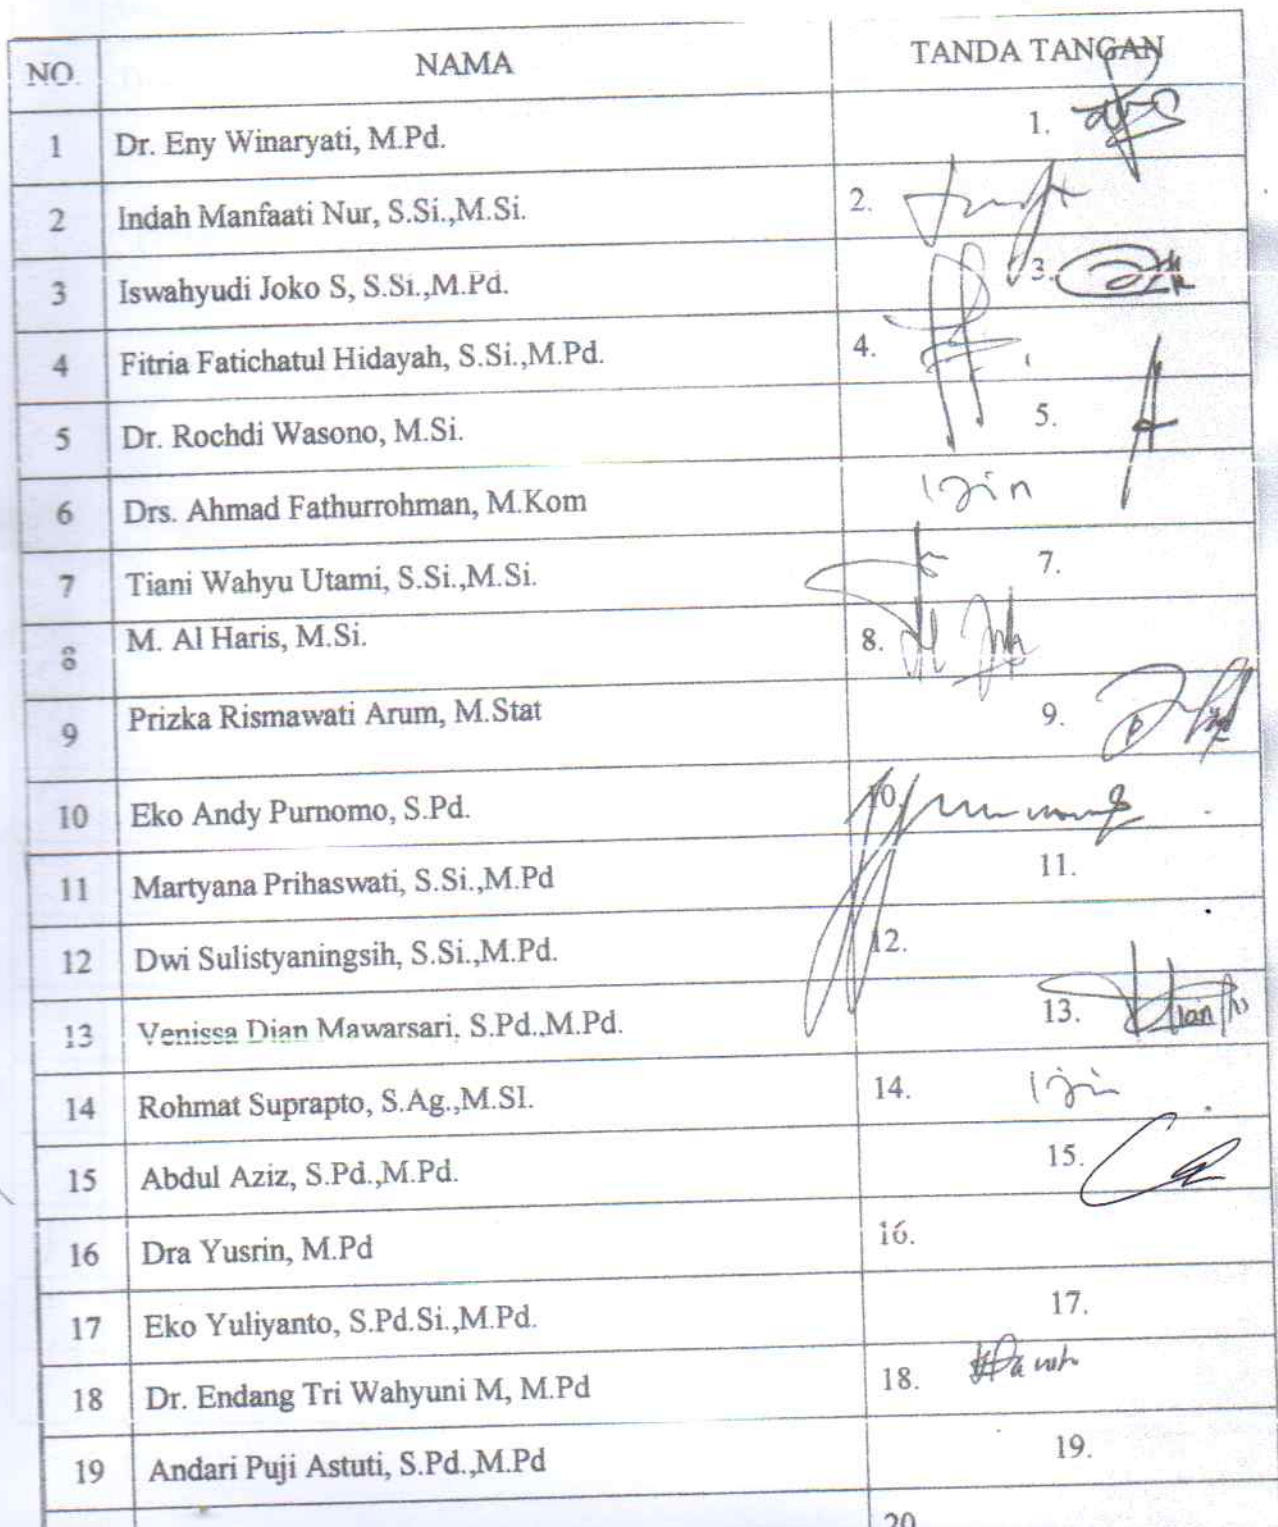 NO. NAMA TANDA TANGAN
1 Dr. Eny Winaryati, M.Pd. 1.
2 Indah Manfaati Nur, S.Si.,M.Si. 2.
3 Iswahyudi Joko S, S.Si.,M.Pd. 3.
4 Fitria Fatichatul Hidayah, S.Si.,M.Pd. 4.
5 Dr. Rochdi Wasono, M.Si. 5.
6 Drs. Ahmad Fathurrohman, M.Kom Izin
7 Tiani Wahyu Utami, S.Si.,M.Si. 7.
8 M. Al Haris, M.Si. 8.
9 Prizka Rismawati Arum, M.Stat 9.
10 Eko Andy Purnomo, S.Pd. 10.
11 Martyana Prihaswati, S.Si.,M.Pd 11.
12 Dwi Sulistyaningsih, S.Si.,M.Pd. 12.
13 Venissa Dian Mawarsari, S.Pd.,M.Pd. 13.
14 Rohmat Suprapto, S.Ag.,M.SI. 14. Izin
15 Abdul Aziz, S.Pd.,M.Pd. 15.
16 Dra Yusrin, M.Pd 16.
17 Eko Yuliyanto, S.Pd.Si.,M.Pd. 17.
18 Dr. Endang Tri Wahyuni M, M.Pd 18.
19 Andari Puji Astuti, S.Pd.,M.Pd 19.
20